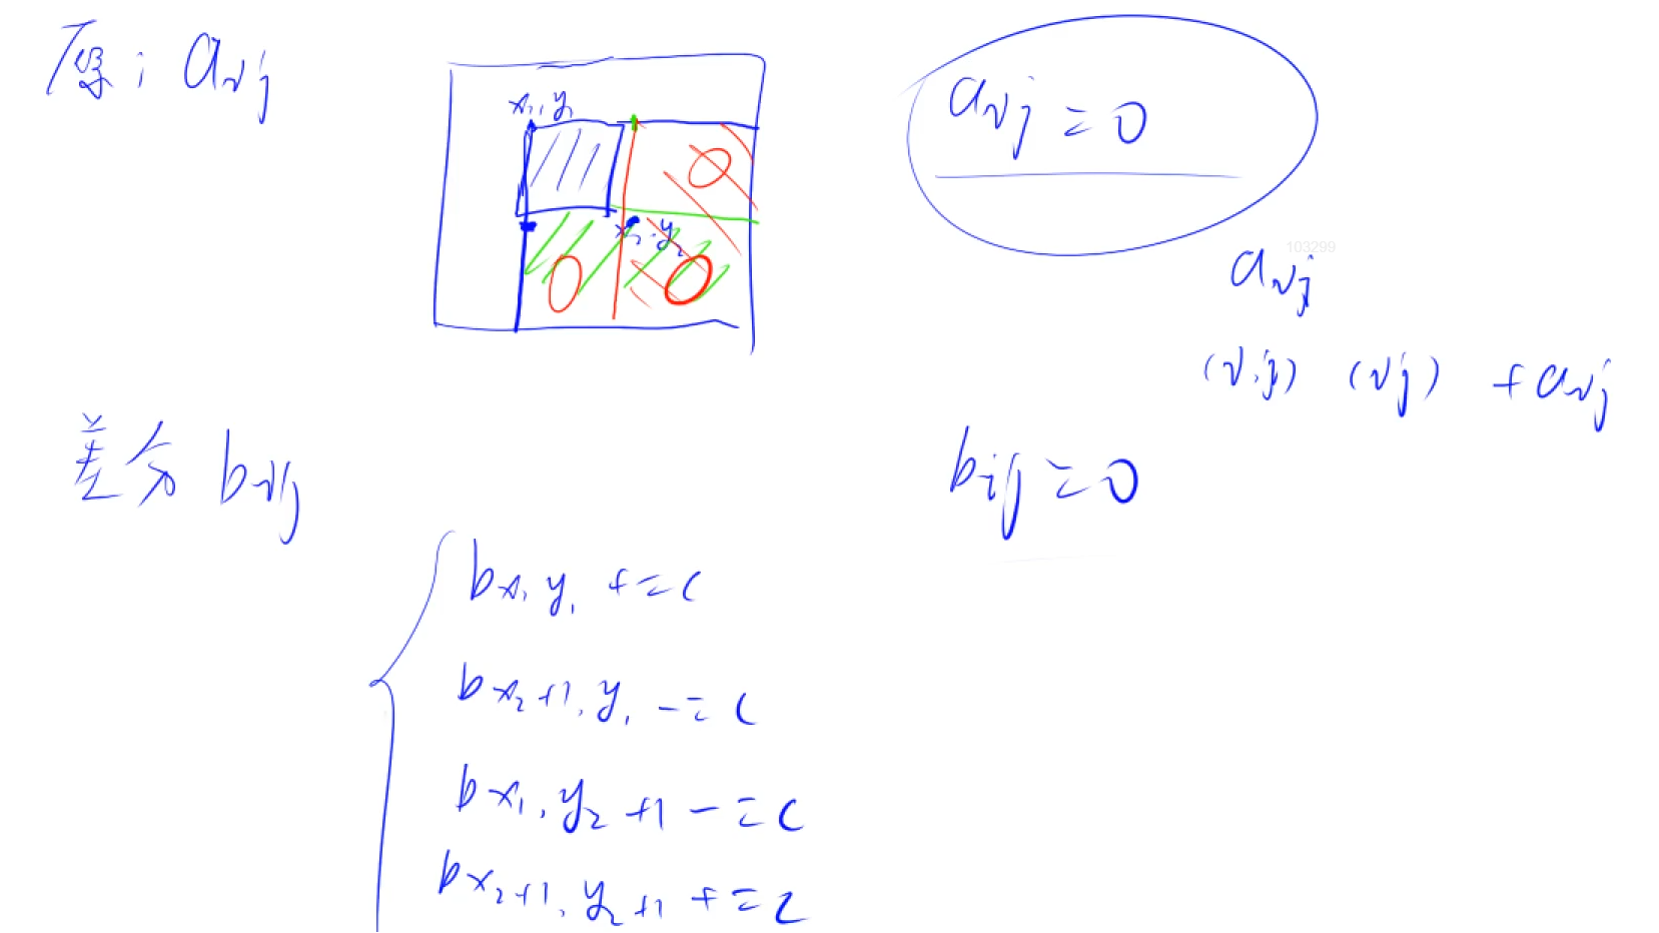 原: aij
x1,y1
0
aij = 0
x2,y2
0
0
103299
aij
(i,j) (ij) +aij
差分 bij
bij = 0
bx1 y1 += c
bx2+1,y1 -= c
bx1,y2+1 -= c
bx2+1,y2+1 += c